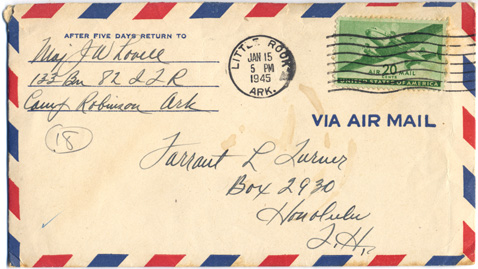 AFTER FIVE DAYS RETURN TO
Maj. J W Lovell
133 Bn 82 I T R
Camp Robinson Ark
18
LITTLE ROCK
JAN 15
5 PM
1945
ARK.
20
AIR MAIL
UNITED STATES OF AMERICA
VIA AIR MAIL
Farrant L Turner
Box 2930
Honolulu
T. H.